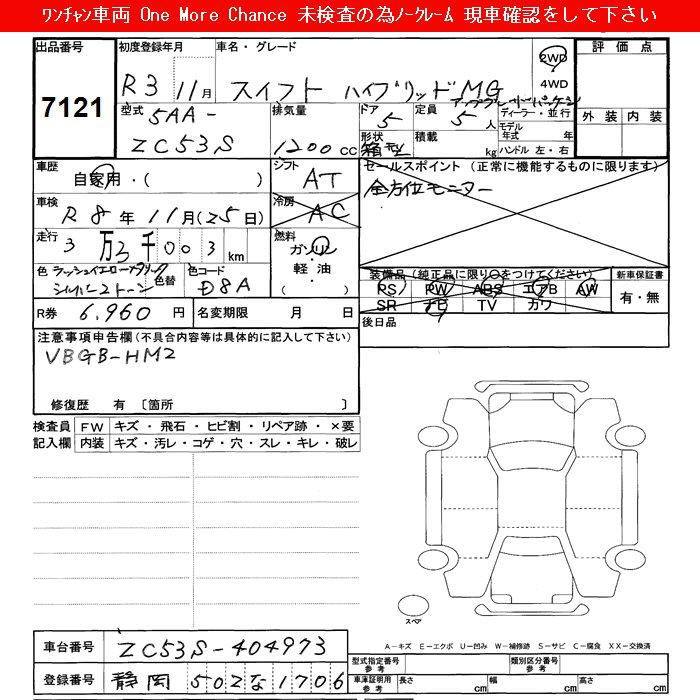 ﾜﾝﾁｬﾝ車両 One More Chance 未検査の為ﾉｰｸﾚｰﾑ 現車確認をして下さい
出品番号 初度登録年月 車名・グレード 2WD 評価点
7121 R3 11月 スイフト ハイブリッドMG 4WD
型式 排気量 ドア 定員 ディーラー・並行 外装 内装
5AA- 5 5人 モデル年式 年
ZC53S 1200cc 形状 積載 kg ハンドル 左・右
車歴 シフト セールスポイント (正常に機能するものに限ります)
自家用・( ) AT 全方位モニター
車検 R8年11月(25日) 冷房 AC
走行 3万3千003km 燃料 ガソリン
軽油
( )
色 色替 色コード 装備品(純正品に限り○をつけてください) 新車保証書
シルバー2トーン D8A RS PW ABS エアB AW 有・無
SR ナビ TV カワ
R券 6,960円 名変期限 月 日 後日品
注意事項申告欄(不具合内容等は具体的に記入して下さい)
VBGB-HM2
修復歴 有〔箇所 〕
検査員 FW キズ・飛石・ヒビ割・リペア跡・×要
記入欄 内装 キズ・汚レ・コゲ・穴・スレ・キレ・破レ
スペア
A-キズ E-エクボ U-凹み W-補修跡 S-サビ C-腐食 XX-交換済
車台番号 ZC53S-404973 型式指定番号 参考 類別区分番号 参考
登録番号 静岡 502な1706 車庫証明用 参考 長さ cm 幅 cm 高さ cm